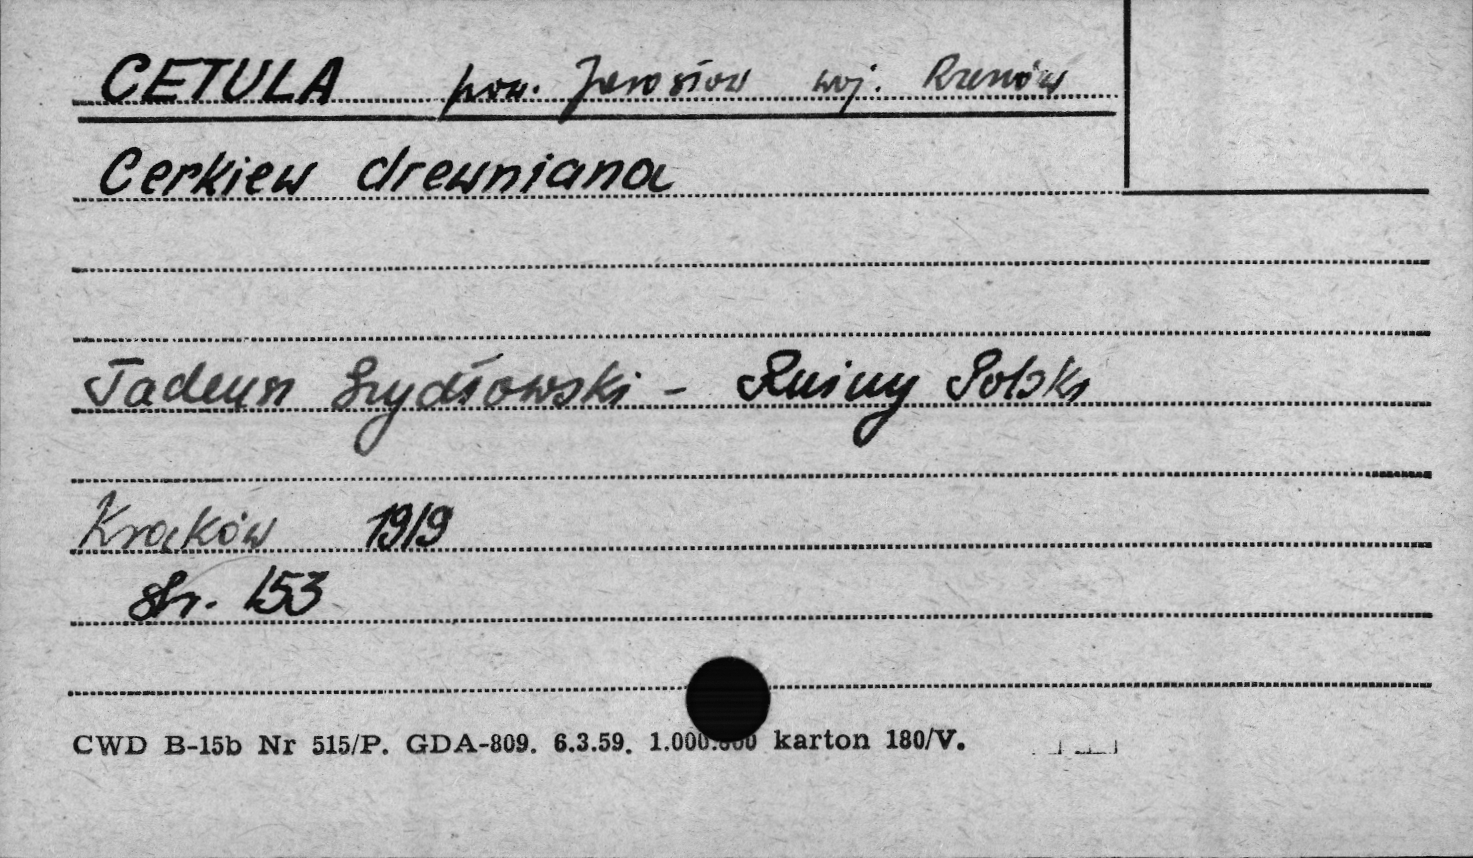 CETULA pow. Jarosław woj. Rzeszów
Cerkiew drewniana
Tadeusz Szydłowski - Ruiny Polski
Kraków 1919
str. 153
CWD B-15b Nr 515/P. GDA-809. 6.3.59. karton 180/V.